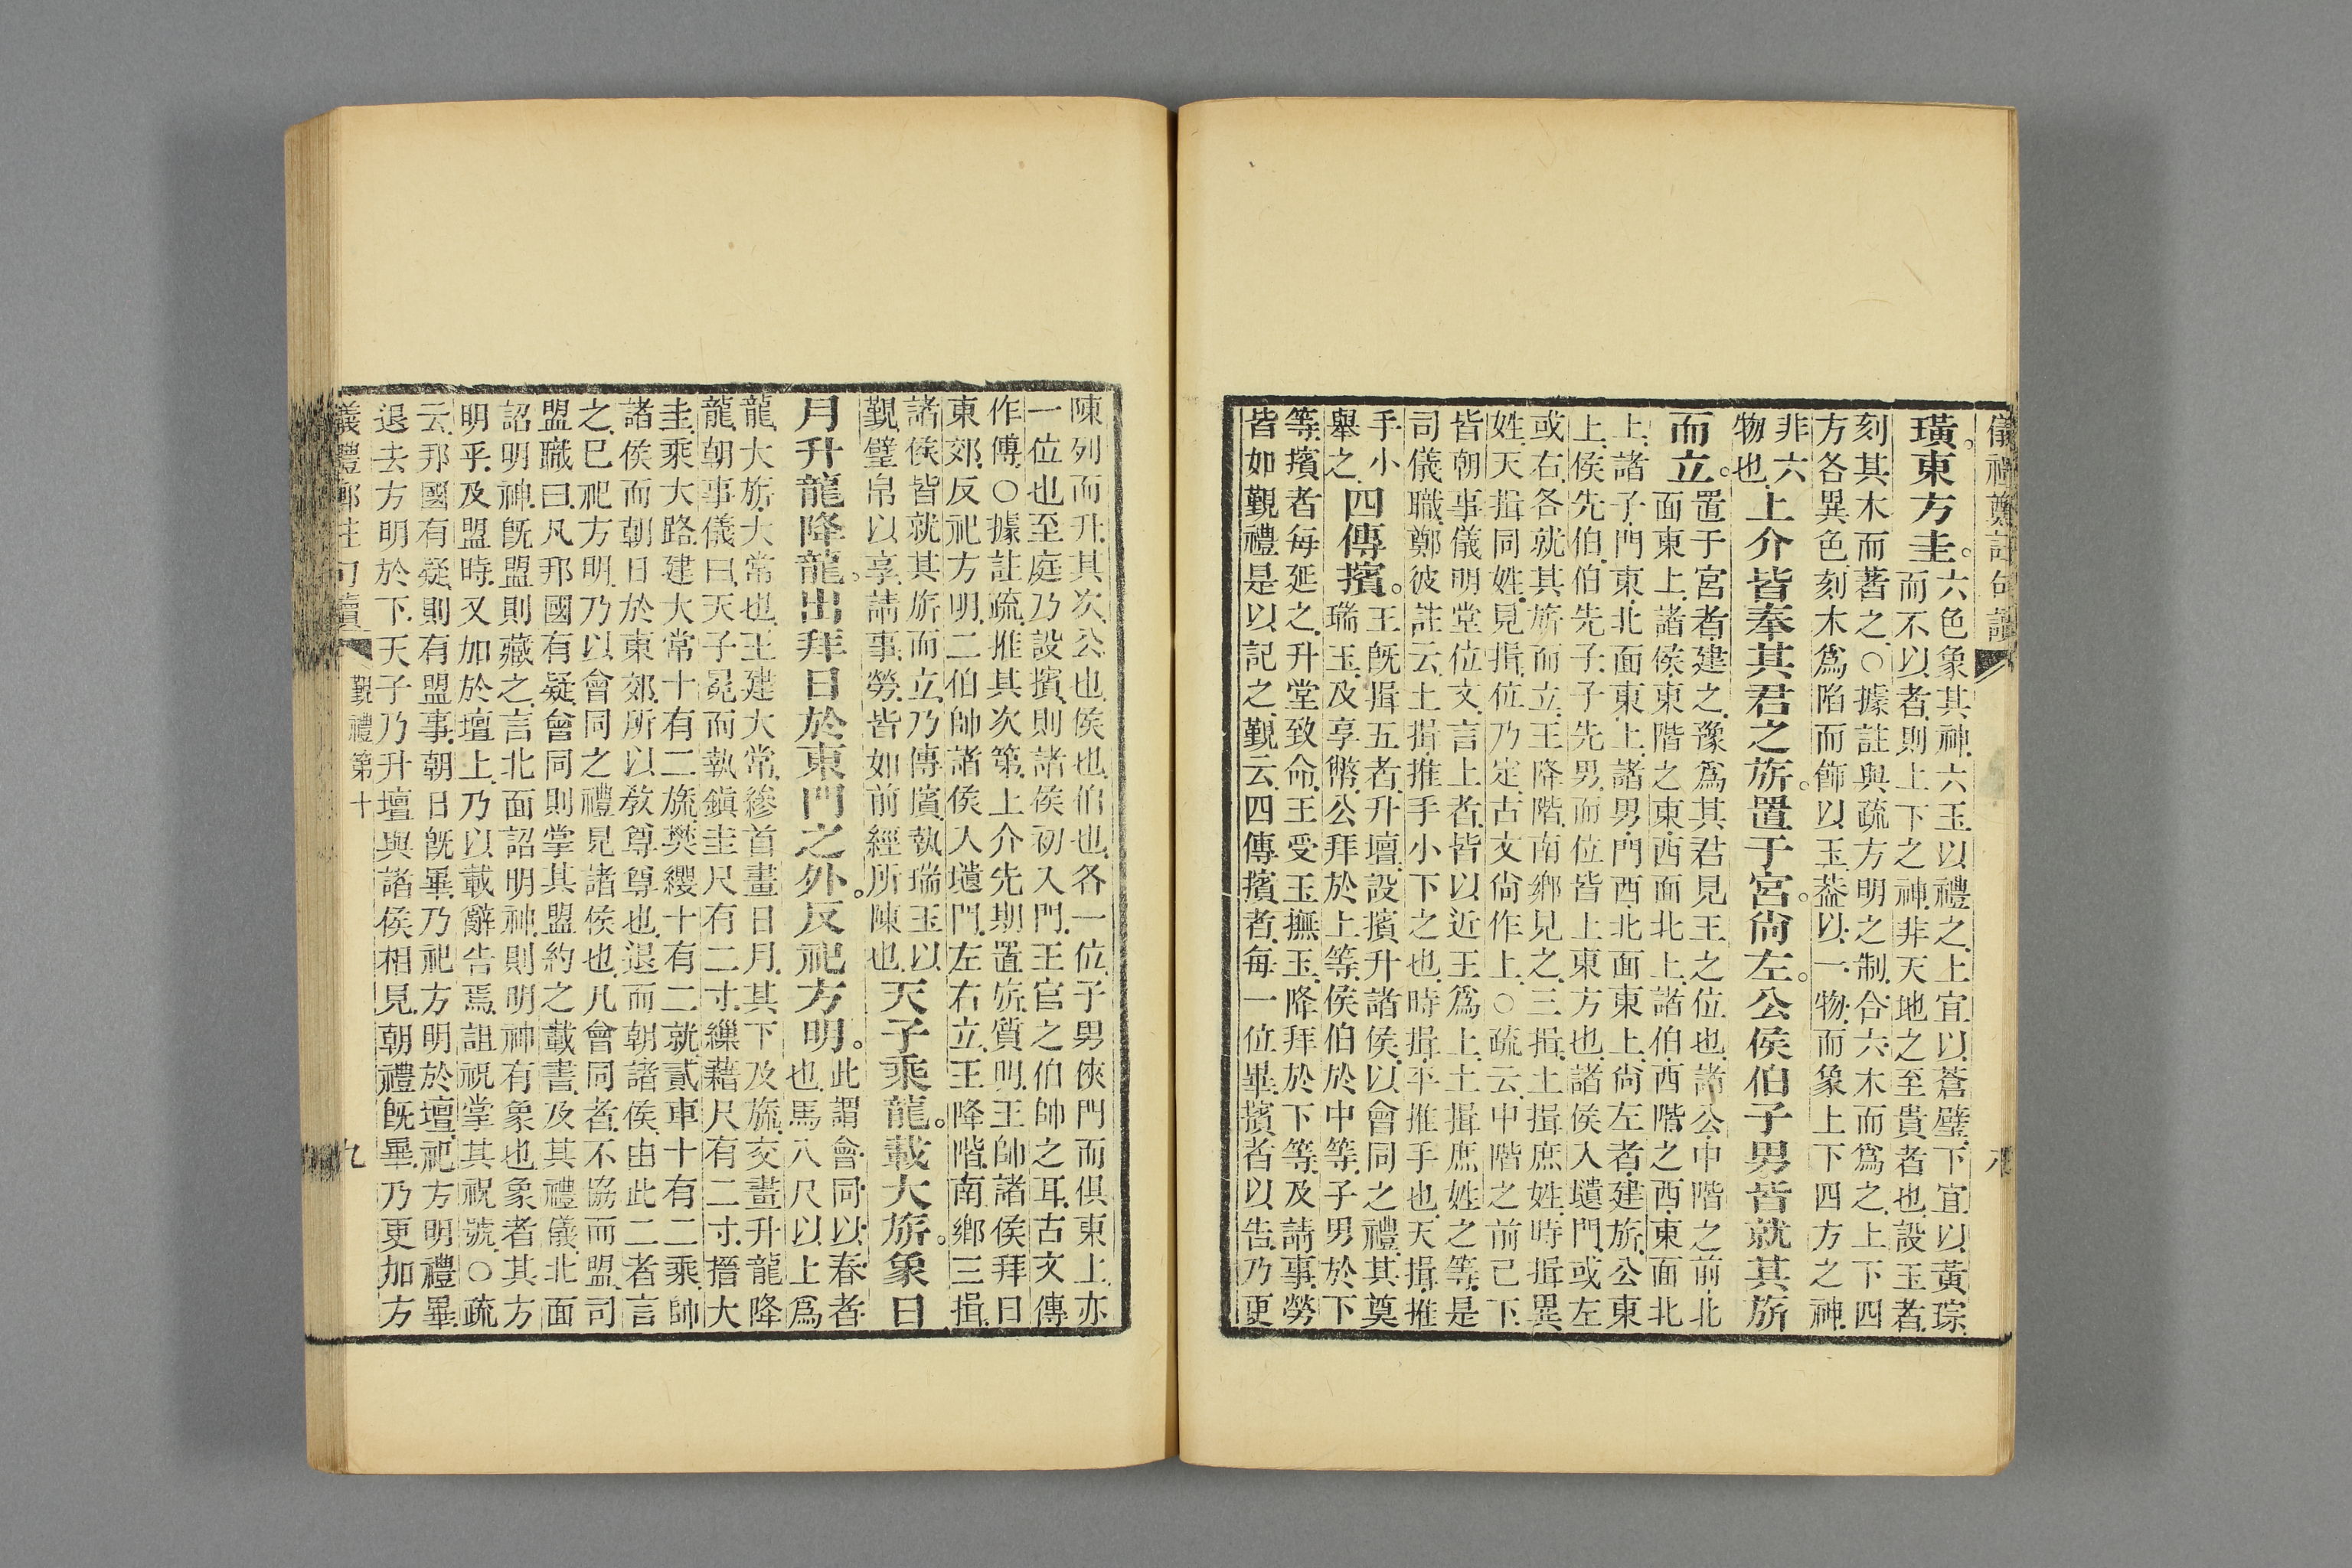 儀禮鄭註句讀 八
璜。東方圭。
六色象其神六玉以禮之上宜以蒼璧下宜以黃琮
而不以者則上下之神非天地之至貴者也設玉者
刻其木而著之○據註與疏方明之制合六木而爲之上下四
方各異色刻木爲陷而飾以玉葢以一物而象上下四方之神
非六
物也
上介皆奉其君之旂。置于宮。尚左。公侯伯子男皆就其旂
而立。
置于宮者建之豫爲其君見王之位也諸公中階之前北
面東上諸侯東階之東西面北上諸伯西階之西東面北
上諸子門東北面東上諸男門西北面東上尚左者建旂公東
上侯先伯伯先子子先男而位皆上東方也諸侯入壝門或左
或右各就其旂而立王降階南鄉見之三揖土揖庶姓時揖異
姓天揖同姓見揖位乃定古文尚作上○疏云中階之前已下
皆朝事儀明堂位文言上者皆以近王爲上土揖庶姓之等是
司儀職鄭彼註云土揖推手小下之也時揖平推手也天揖推
手小
舉之
四傳擯。
王旣揖五者升壇設擯升諸侯以會同之禮其奠
瑞玉及享幣公拜於上等侯伯於中等子男於下
等擯者每延之升堂致命王受玉撫玉降拜於下等及請事勞
皆如覲禮是以記之覲云四傳擯者每一位畢擯者以告乃更
陳列而升其次公也侯也伯也各一位子男俠門而俱東上亦
一位也至庭乃設擯則諸侯初入門王官之伯帥之耳古文傳
作傅○據註疏推其次第上介先期置旂質明王帥諸侯拜日
東郊反祀方明二伯帥諸侯入壝門左右立王降階南鄉三揖
諸侯皆就其旂而立乃傳擯執瑞玉以
覲璧帛以享請事勞皆如前經所陳也
天子乘龍。載大旂。象日
月升龍降龍。出拜日於東門之外。反祀方明。
此謂會同以春者
也馬八尺以上爲
龍大旂大常也王建大常縿首畫日月其下及旒交畫升龍降
龍朝事儀曰天子冕而執鎭圭尺有二寸繅藉尺有二寸搢大
圭乘大路建大常十有二旒樊纓十有二就貳車十有二乘帥
諸侯而朝日於東郊所以教尊尊也退而朝諸侯由此二者言
之巳祀方明乃以會同之禮見諸侯也凡會同者不協而盟司
盟職曰凡邦國有疑會同則掌其盟約之載書及其禮儀北面
詔明神旣盟則藏之言北面詔明神則明神有象也象者其方
明乎及盟時又加於壇上乃以載辭告焉詛祝掌其祝號○疏
云邦國有疑則有盟事朝日旣畢乃祀方明於壇祀方明禮畢
退去方明於下天子乃升壇與諸侯相見朝禮旣畢乃更加方
儀禮鄭註句讀 覲禮第十 九